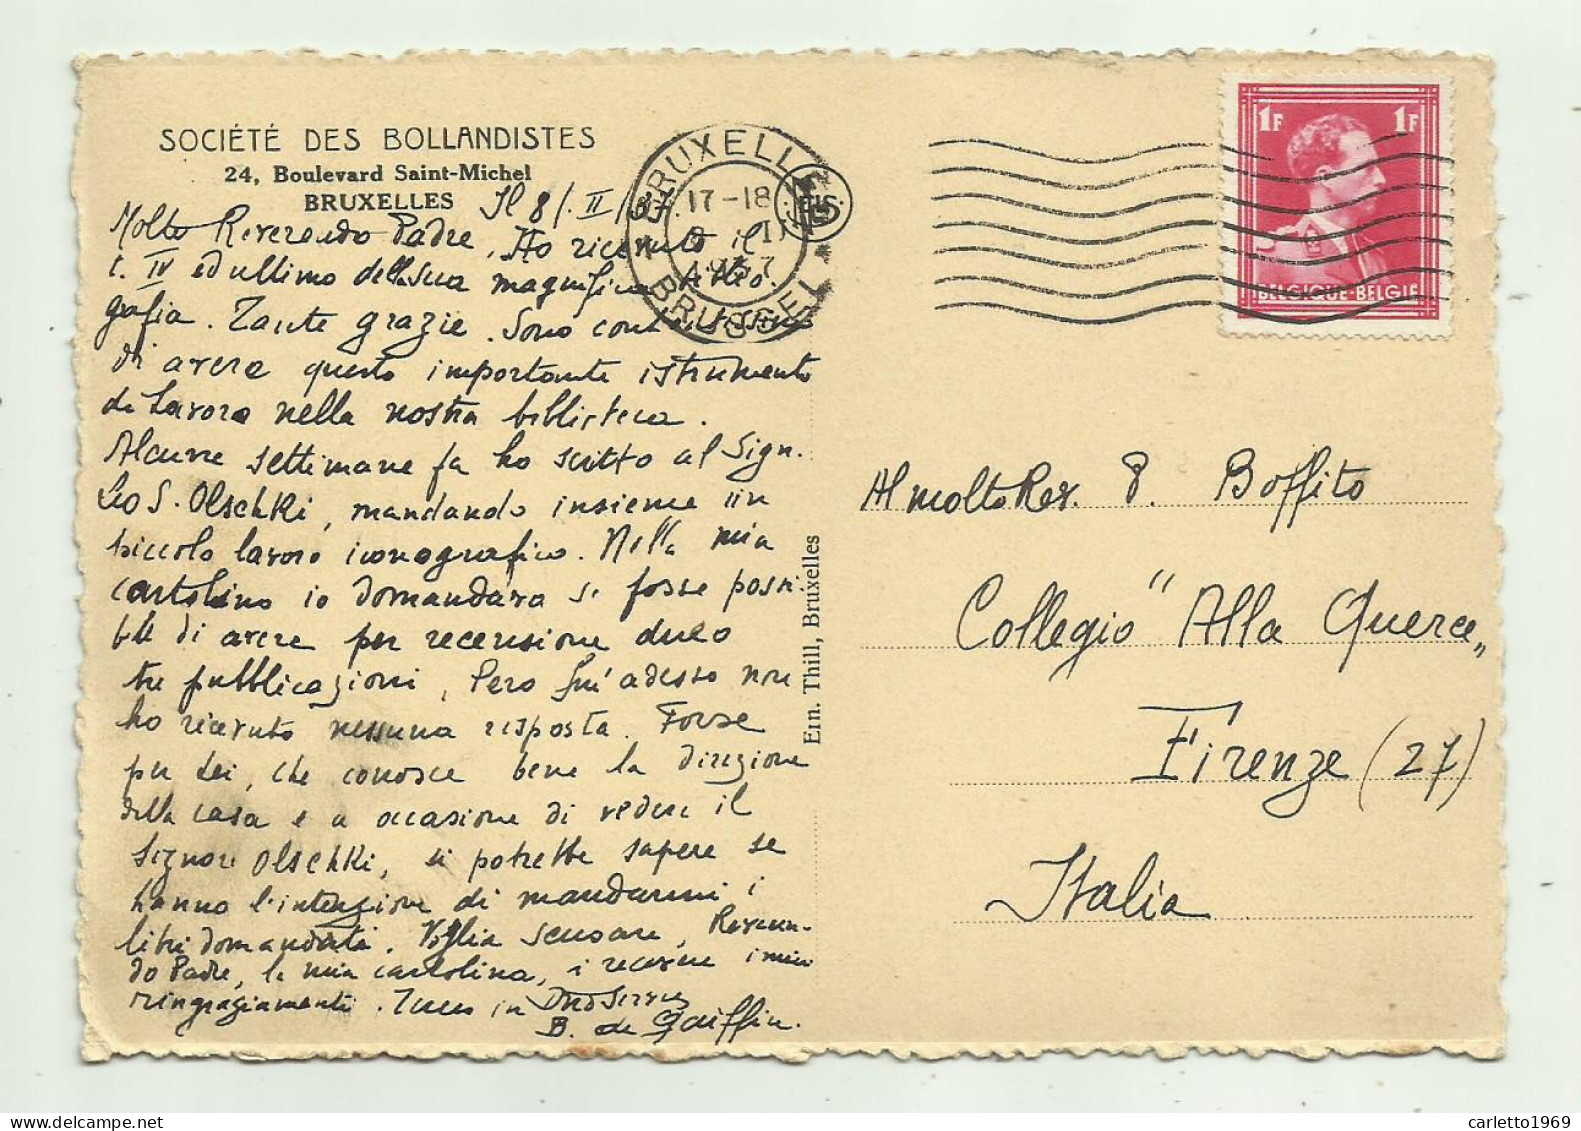 SOCIÉTÉ DES BOLLANDISTES
24, Boulevard Saint-Michel
BRUXELLES
Il 8/. II/37.
Molto Reverendo Padre, Ho ricevuto il
t. IV ed ultimo della sua magnifica
grafia. Tante grazie. Sono contentissimo
di avere questo importante istrumento
di lavoro nella nostra biblioteca.
Alcune settimane fa ho scritto al Sign.
Leo S. Olschki, mandando insieme un
piccolo lavoro iconografico. Nella mia
cartolina io domandava se fosse possi-
bile di avere per recensione due o
tre pubblicazioni, Pero fin' adesso non
ho ricevuto nessuna risposta. Forse
per Lei, che conosce bene la direzione
della casa e a occasione di vedere il
Signore Olschki, si potrebbe sapere se
hanno l'intenzione di mandarmi i
libri domandati. Voglia scusare, Reveren-
do Padre, la mia cartolina, i receva i miei
ringraziamenti. in Dno Servus
B. de Gaiffier.
BRUXELLES
17-18
1937
BRUSSEL
1F 1F
BELGIQUE-BELGIE
Ern. Thill, Bruxelles
Al molto Rev. P. Boffito
Collegio "Alla Querce„
Firenze (27)
Italia
carletto1969